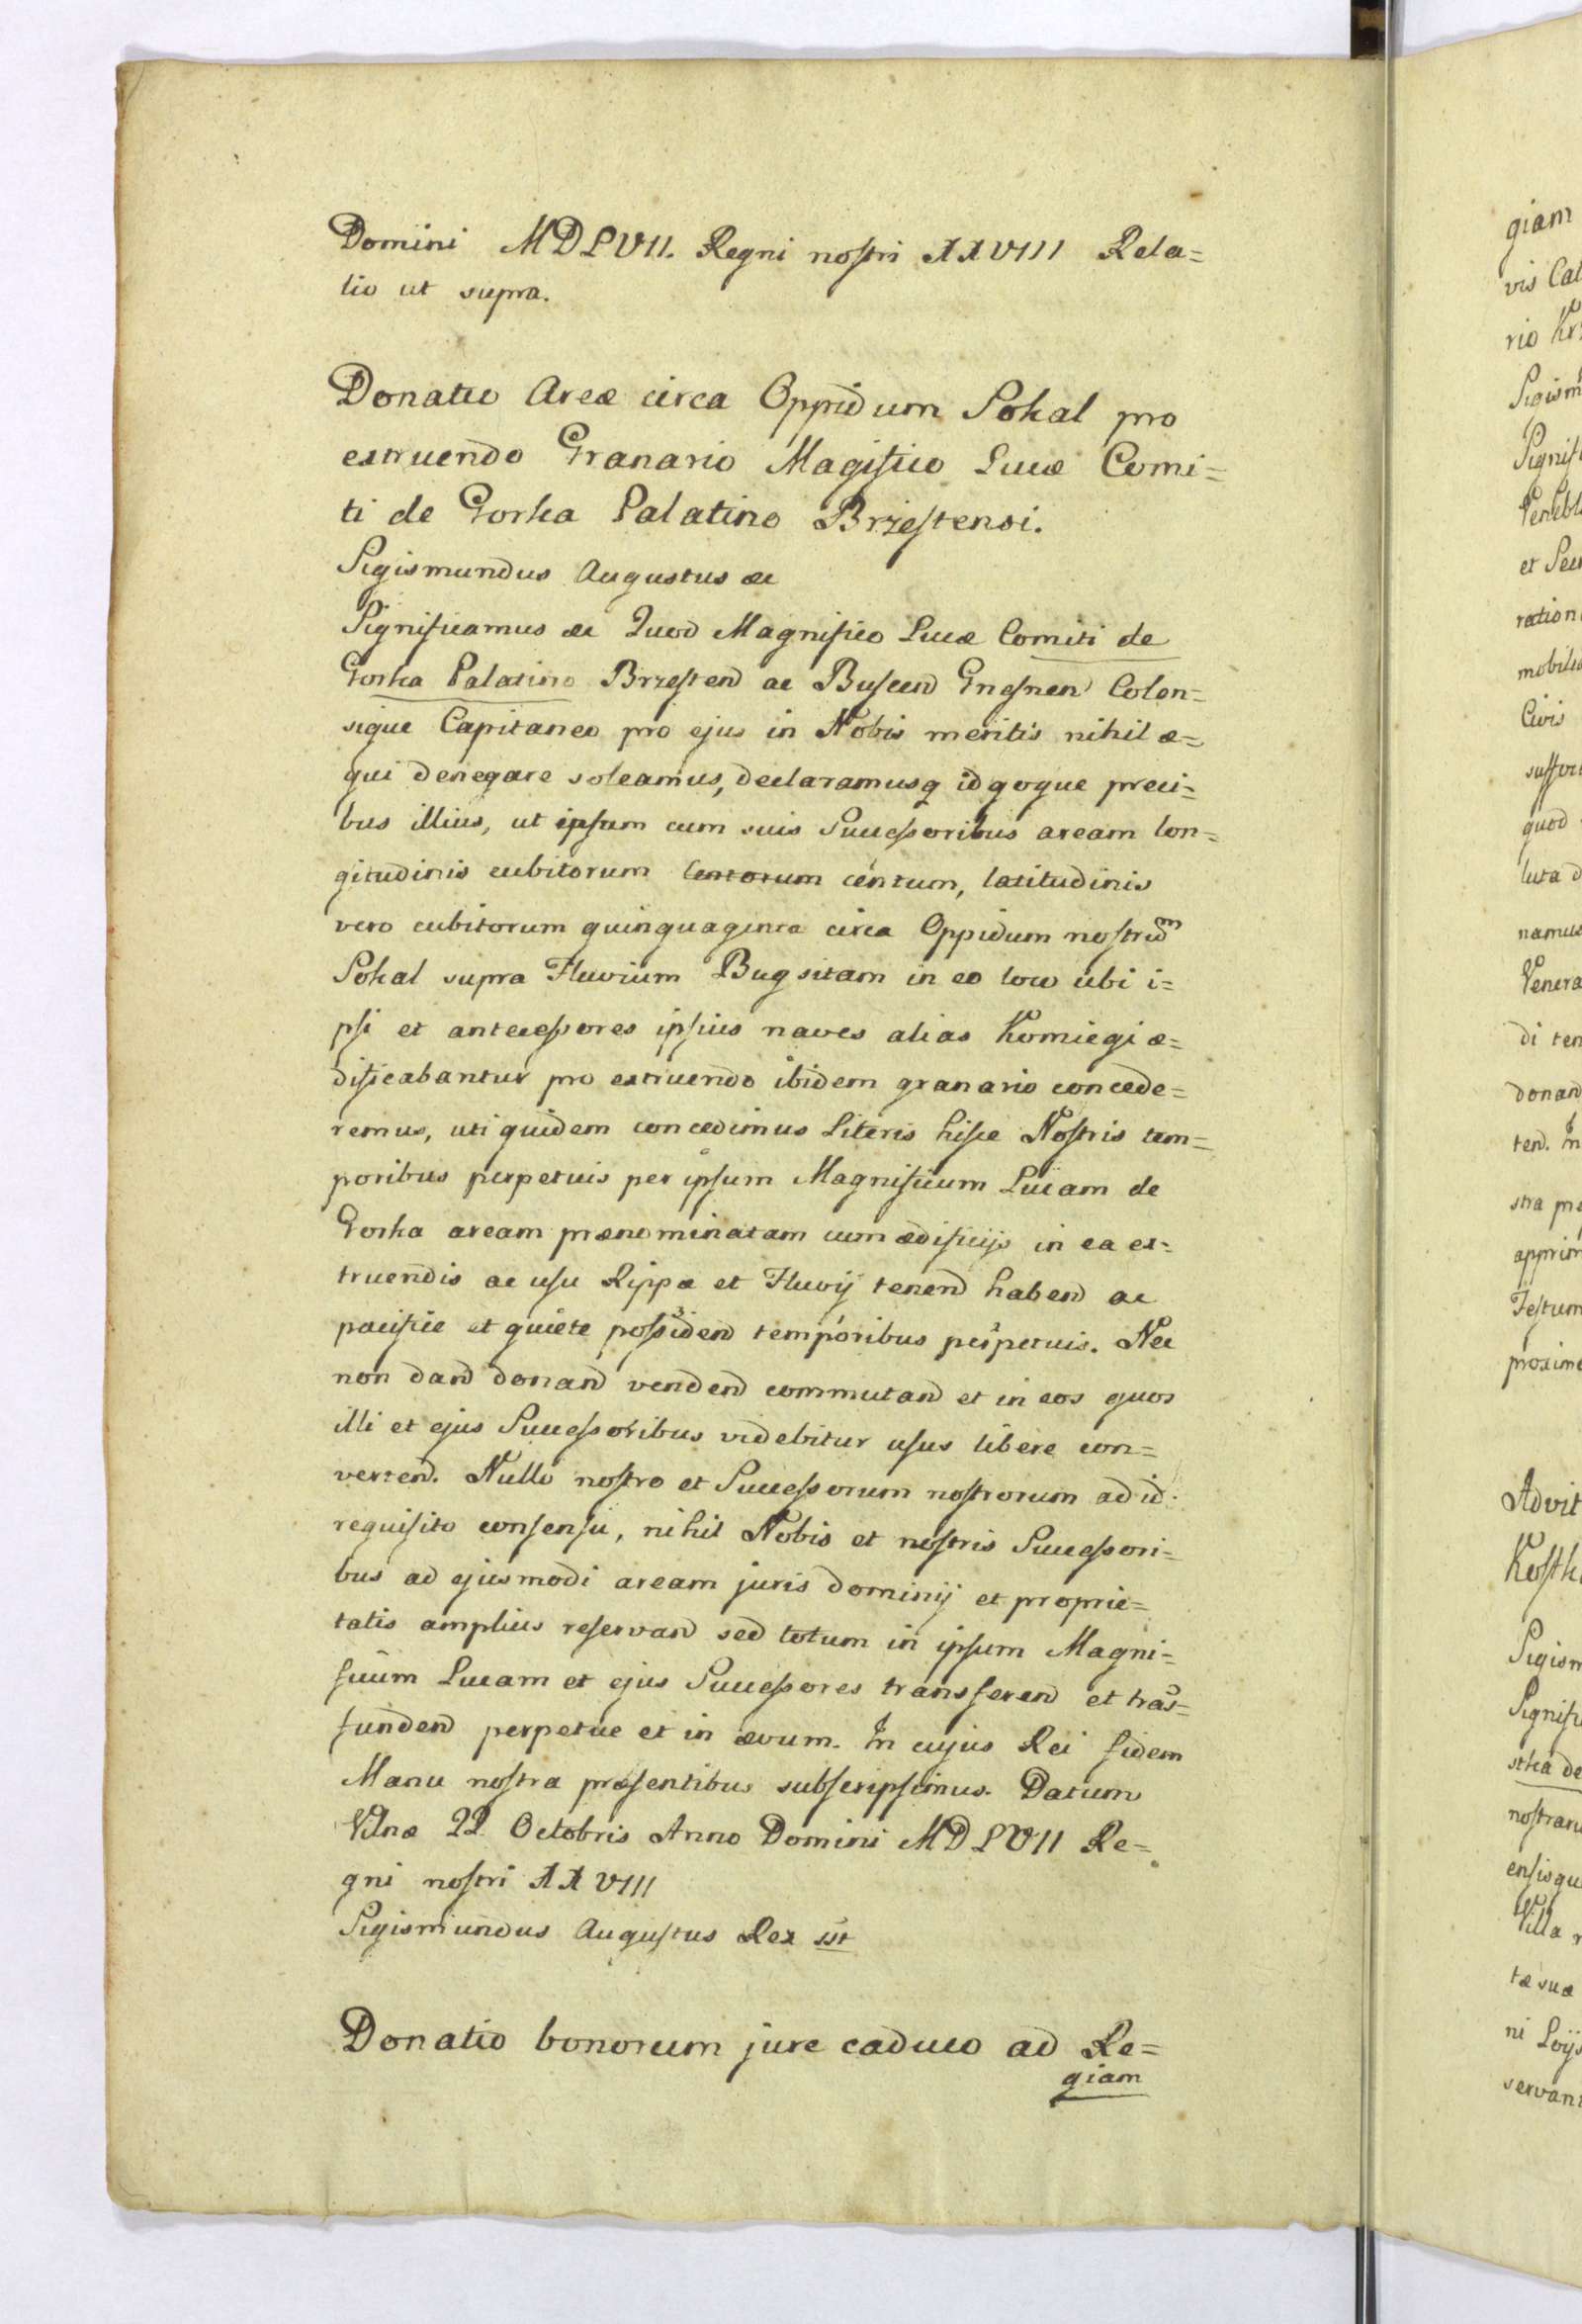 Domini MDLVII. Regni nostri XXVIII Rela=
tio ut supra.
Donatio Areæ circa Oppidum Sokal pro
extruendo Granario Magifico Lucæ Comi=
ti de Gorka Palatino Brzestensi.
Sigismundus Augustus &c
Significamus &c Quod Magnifico Lucæ Comiti de
Gorka Palatino Brzesten ac Buscen Gnesnen Colen=
sique Capitaneo pro ejus in Nobis meritis nihil æ=
qui denegare soleamus, declaramusq idqoque preci=
bus illius, ut ipsum cum suis Successoribus aream lon=
gitudinis cubitorum centorum centum, latitudinis
vero cubitorum quinquaginta circa Oppidum nostrum
Sokal supra Fluvium Bug sitam in eo loco ubi i=
psi et antecessores ipsius naves alias Komiegi æ=
dificabantur pro extruendo ibidem granario concede=
remus, uti quidem concedimus Literis hisce Nostris tem=
poribus perpetuis per ipsum Magnificum Lucam de
Gorka aream prænominatam cum ædificijs in ea ex=
truendis ac usu Rippæ et Fluvij tenend habend ac
pacifice et quiete possidend temporibus perpetuis. Nec
non dand donand vendend commutand et in eos quos
illi et ejus Successoribus videbitur usus libere con=
vertend. Nullo nostro et Successorum nostrorum ad id
requisito consensu, nihil Nobis et nostris Successori=
bus ad ejusmodi aream juris dominij et proprie=
tatis amplius reservand sed totum in ipsum Magni=
ficum Lucam et ejus Successores transferend et tras=
fundend perpetue et in ævum. In cujus Rei fidem
Manu nostra præsentibus subscripsimus. Datum
Vilnæ 22 Octobris Anno Domini MDLVII Re=
gni nostri XXVIII
Sigismundus Augustus Rex sst
Donatio bonorum jure caduco ad Re=
giam
giam
rio
Sigism
et
ration
Civis
quod
namus
Venera
di ten
donand
ten. In
stra
Festum
proxime
Advit
Sigism
nostram
Villa
tæ suæ
ni
servan